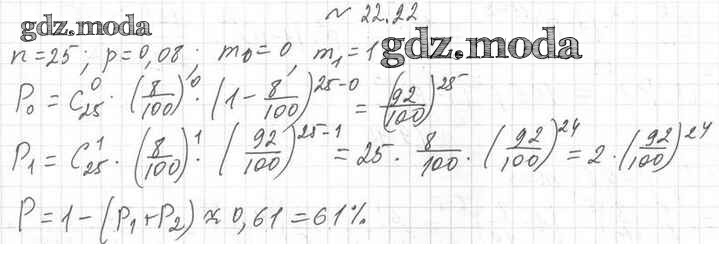 № 22.22
gdz.moda
n=25; p=0,08; m₀=0, m₁=1 gdz.moda
P₀ = C₂₅⁰ · (8/100)⁰ · (1 - 8/100)²⁵⁻⁰ = (92/100)²⁵
P₁ = C₂₅¹ · (8/100)¹ · (92/100)²⁵⁻¹ = 25 · 8/100 · (92/100)²⁴ = 2 · (92/100)²⁴
P = 1 - (P₁ + P₂) ≈ 0,61 = 61%